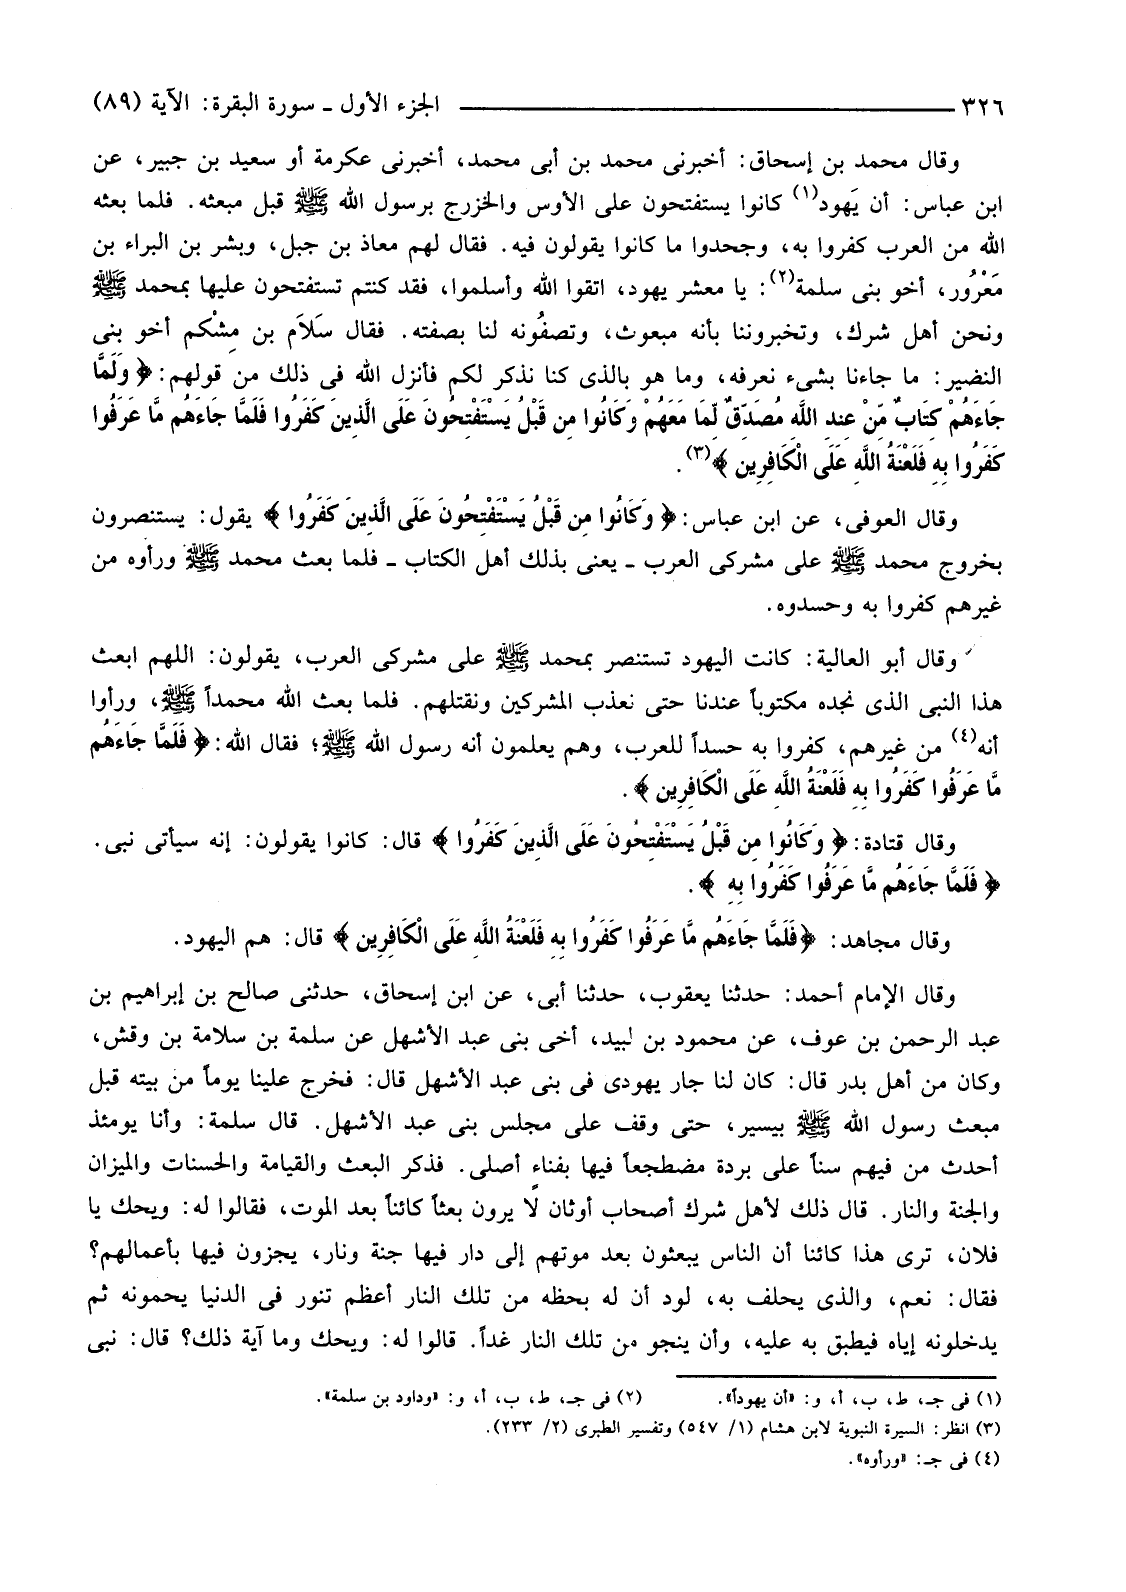 ٣٢٦ الجزء الأول ـ سورة البقرة: الآية (٨٩)
وقال محمد بن إسحاق: أخبرنى محمد بن أبى محمد، أخبرنى عكرمة أو سعيد بن جبير، عن
ابن عباس: أن يَهود(١) كانوا يستفتحون على الأوس والخزرج برسول الله ﷺ قبل مبعثه. فلما بعثه
الله من العرب كفروا به، وجحدوا ما كانوا يقولون فيه. فقال لهم معاذ بن جبل، وبشر بن البراء بن
مَعْرُور، أخو بنى سلمة(٢): يا معشر يهود، اتقوا الله وأسلموا، فقد كنتم تستفتحون عليها بمحمد ﷺ
ونحن أهل شرك، وتخبروننا بأنه مبعوث، وتصفُونه لنا بصفته. فقال سَلاَم بن مِشْكم أخو بنى
النضير: ما جاءنا بشىء نعرفه، وما هو بالذى كنا نذكر لكم فأنزل الله فى ذلك من قولهم: ﴿ وَلَمَّا
جَاءَهُمْ كِتَابٌ مِّنْ عِندِ اللَّهِ مُصَدِّقٌ لِّمَا مَعَهُمْ وَكَانُوا مِن قَبْلُ يَسْتَفْتِحُونَ عَلَى الَّذِينَ كَفَرُوا فَلَمَّا جَاءَهُم مَّا عَرَفُوا
كَفَرُوا بِهِ فَلَعْنَةُ اللَّهِ عَلَى الْكَافِرِين ﴾(٣).
وقال العوفى، عن ابن عباس: ﴿ وَكَانُوا مِن قَبْلُ يَسْتَفْتِحُونَ عَلَى الَّذِينَ كَفَرُوا ﴾ يقول: يستنصرون
بخروج محمد ﷺ على مشركى العرب ـ يعنى بذلك أهل الكتاب ـ فلما بعث محمد ﷺ ورأوه من
غيرهم كفروا به وحسدوه.
وقال أبو العالية: كانت اليهود تستنصر بمحمد ﷺ على مشركى العرب، يقولون: اللهم ابعث
هذا النبى الذى نجده مكتوباً عندنا حتى نعذب المشركين ونقتلهم. فلما بعث الله محمداً ﷺ، ورأوا
أنه(٤) من غيرهم، كفروا به حسداً للعرب، وهم يعلمون أنه رسول الله ﷺ؛ فقال الله: ﴿ فَلَمَّا جَاءَهُم
مَّا عَرَفُوا كَفَرُوا بِهِ فَلَعْنَةُ اللَّهِ عَلَى الْكَافِرِين ﴾.
وقال قتادة: ﴿ وَكَانُوا مِن قَبْلُ يَسْتَفْتِحُونَ عَلَى الَّذِينَ كَفَرُوا ﴾ قال: كانوا يقولون: إنه سيأتى نبى.
﴿ فَلَمَّا جَاءَهُم مَّا عَرَفُوا كَفَرُوا بِهِ ﴾.
وقال مجاهد: ﴿ فَلَمَّا جَاءَهُم مَّا عَرَفُوا كَفَرُوا بِهِ فَلَعْنَةُ اللَّهِ عَلَى الْكَافِرِين ﴾ قال: هم اليهود.
وقال الإمام أحمد: حدثنا يعقوب، حدثنا أبى، عن ابن إسحاق، حدثنى صالح بن إبراهيم بن
عبد الرحمن بن عوف، عن محمود بن لبيد، أخى بنى عبد الأشهل عن سلمة بن سلامة بن وقش،
وكان من أهل بدر قال: كان لنا جار يهودى فى بنى عبد الأشهل قال: فخرج علينا يوماً من بيته قبل
مبعث رسول الله ﷺ بيسير، حتى وقف على مجلس بنى عبد الأشهل. قال سلمة: وأنا يومئذ
أحدث من فيهم سناً على بردة مضطجعاً فيها بفناءٍ أصلى. فذكر البعث والقيامة والحسنات والميزان
والجنة والنار. قال ذلك لأهل شرك أصحاب أوثان لا يرون بعثاً كائناً بعد الموت، فقالوا له: ويحك يا
فلان، ترى هذا كائنا أن الناس يبعثون بعد موتهم إلى دار فيها جنة ونار، يجزون فيها بأعمالهم؟
فقال: نعم، والذى يحلف به، لود أن له بحظه من تلك النار أعظم تنور فى الدنيا يحمونه ثم
يدخلونه إياه فيطبق به عليه، وأن ينجو من تلك النار غداً. قالوا له: ويحك وما آية ذلك؟ قال: نبى
(١) فى جـ، ط، ب، أ، و: «أن يهوداً». (٢) فى جـ، ط، ب، أ، و: «وداود بن سلمة».
(٣) انظر: السيرة النبوية لابن هشام (١/ ٥٤٧) وتفسير الطبرى (٢/ ٢٣٣).
(٤) فى جـ: «ورأوه».